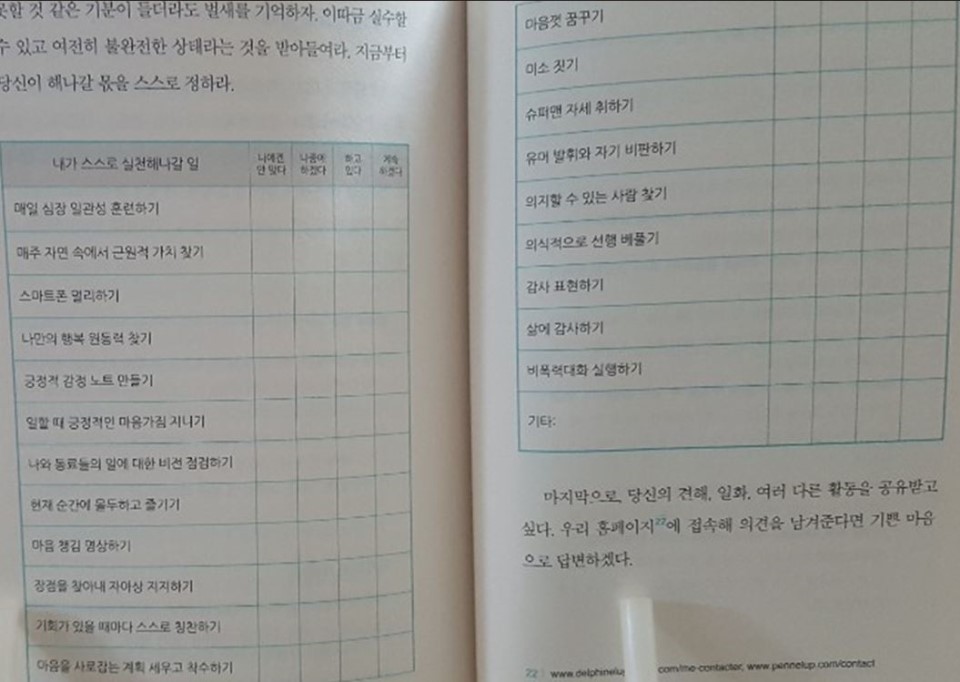 못할 것 같은 기분이 들더라도 벌새를 기억하자. 이따금 실수할
수 있고 여전히 불완전한 상태라는 것을 받아들여라. 지금부터
당신이 해나갈 몫을 스스로 정하라.
내가 스스로 실천해나갈 일 나에겐 안 맞다 나중에 하겠다 하고 있다 계속 하겠다
매일 심장 일관성 훈련하기
매주 자연 속에서 근원적 가치 찾기
스마트폰 멀리하기
나만의 행복 원동력 찾기
긍정적 감정 노트 만들기
일할 때 긍정적인 마음가짐 지니기
나와 동료들의 일에 대한 비전 점검하기
현재 순간에 몰두하고 즐기기
마음 챙김 명상하기
장점을 찾아내 자아상 지지하기
기회가 있을 때마다 스스로 칭찬하기
마음을 사로잡는 계획 세우고 착수하기
마음껏 꿈꾸기
미소 짓기
슈퍼맨 자세 취하기
유머 발휘와 자기 비판하기
의지할 수 있는 사람 찾기
의식적으로 선행 베풀기
감사 표현하기
삶에 감사하기
비폭력대화 실행하기
기타:
마지막으로, 당신의 견해, 일화, 여러 다른 활동을 공유받고
싶다. 우리 홈페이지22에 접속해 의견을 남겨준다면 기쁜 마음
으로 답변하겠다.
22 www.delphinelu com/me-contacter, www.pennelup.com/contact